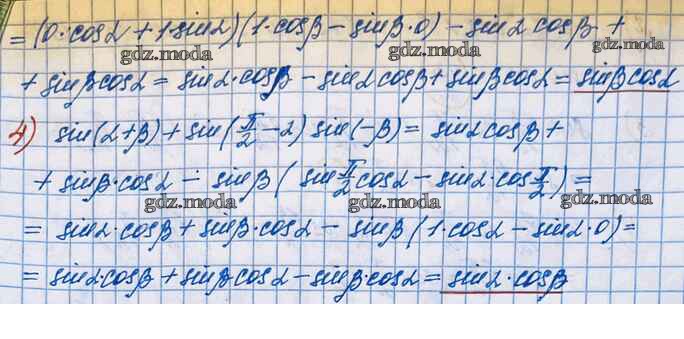 = (0·cosα + 1·sinα)(1·cosβ − sinβ·0) − sinα cosβ +
gdz.moda gdz.moda gdz.moda
+ sinβ cosα = sinα·cosβ − sinα cosβ + sinβ cosα = sinβ cosα
gdz.moda gdz.moda gdz.moda
4) sin(α+β) + sin(π/2 − α) sin(−β) = sinα cosβ +
+ sinβ·cosα − sinβ (sin π/2 cosα − sinα·cos π/2) =
gdz.moda gdz.moda gdz.moda
= sinα·cosβ + sinβ·cosα − sinβ (1·cosα − sinα·0) =
= sinα·cosβ + sinβ cosα − sinβ·cosα = sinα·cosβ
gdz.moda gdz.moda gdz.moda